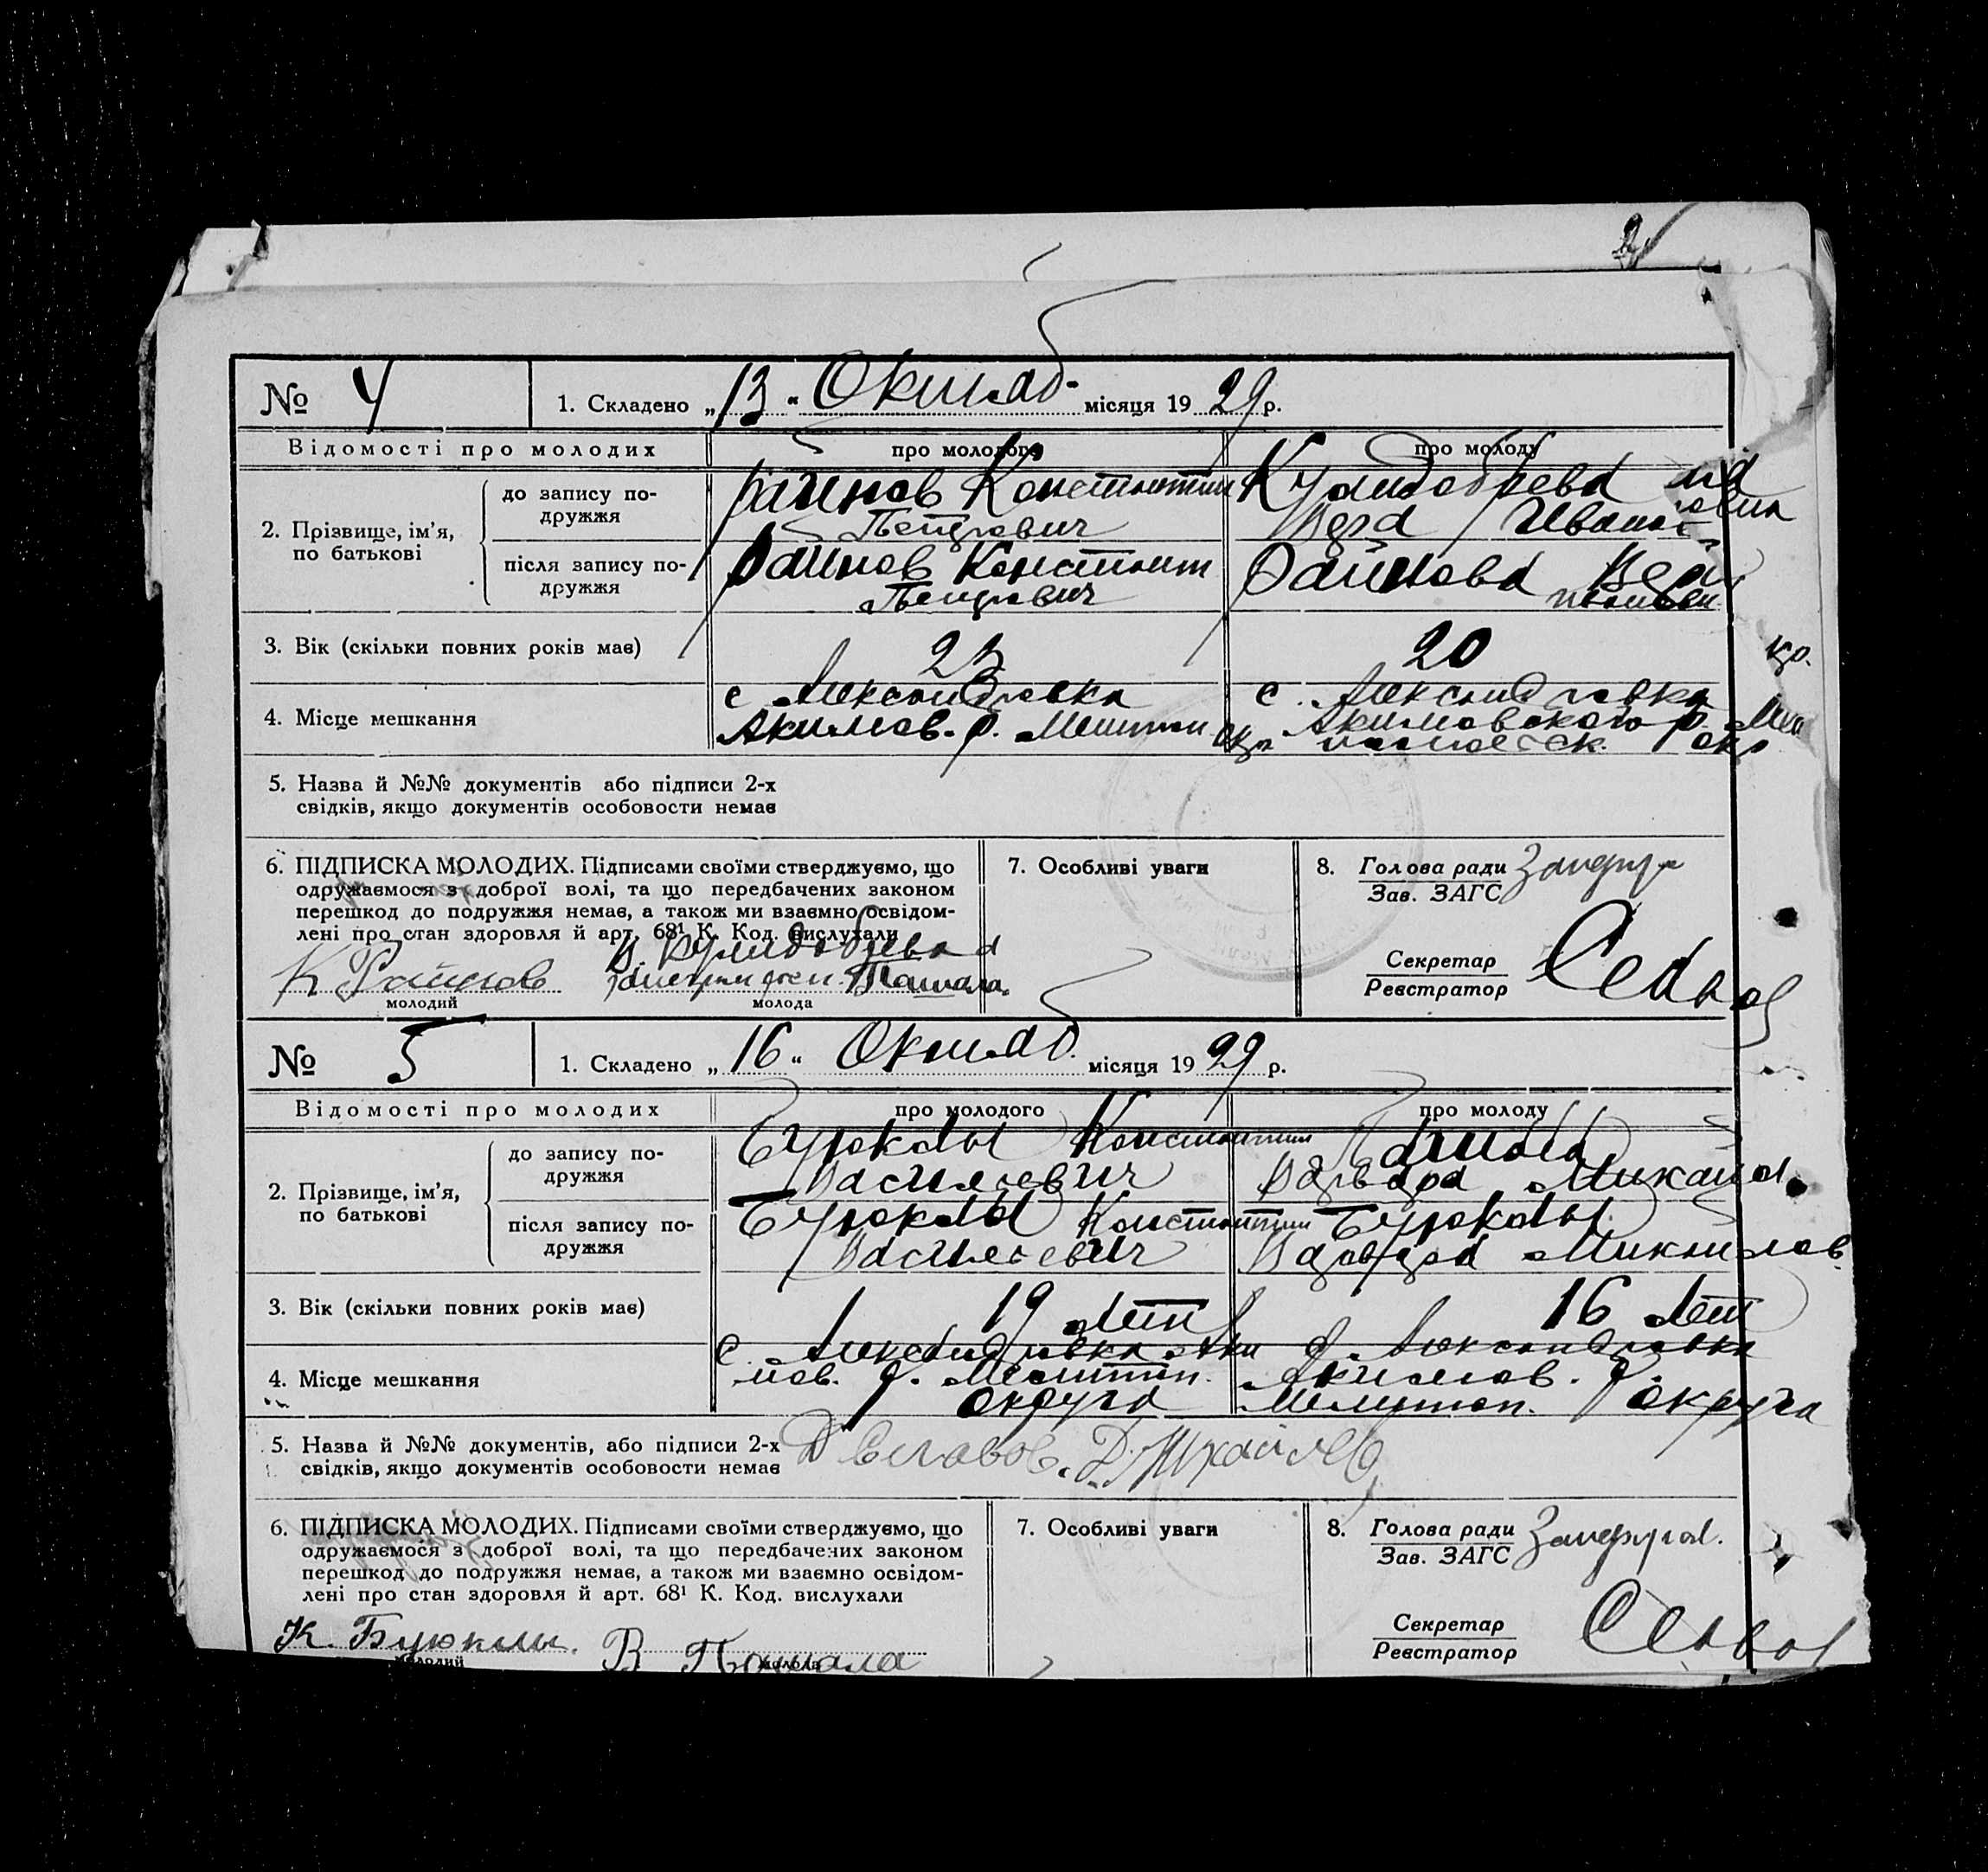 № 4 1. Складено „13“ Октяб. місяця 1929 р.
Відомості про молодих про молодого про молоду
2. Прізвище, ім’я, по батькові
до запису подружжя
Константин
Петрович
Вера Иванов
після запису подружжя
Файнов Констант
Петрович
Файнова Вера
3. Вік (скільки повних років має) 23 20
4. Місце мешкання
с Александровка
Акимов. р. Мелитоп окр
с. Александровка
Акимовского р.
5. Назва й №№ документів або підписи 2-х
свідків, якщо документів особовости немає
6. ПІДПИСКА МОЛОДИХ. Підписами своїми стверджуємо, що
одружаємося з доброї волі, та що передбачених законом
перешкод до подружжя немає, а також ми взаємно освідом-
лені про стан здоровля й арт. 68¹ К. Код. вислухали
К Файнов
молодий молода
7. Особливі уваги
8. Голова ради
Зав. ЗАГС
Секретар
Реєстратор
№ 5 1. Складено „16“ Октяб. місяця 1929 р.
Відомості про молодих про молодого про молоду
2. Прізвище, ім’я, по батькові
до запису подружжя
Буюклы Константин
Васильевич
Варвара Михайл.
після запису подружжя
Буюклы Константин
Васильевич
Буюклы
Варвара Михайлов.
3. Вік (скільки повних років має) 19 лет 16 лет
4. Місце мешкання
с. Александровка Аки
мов. р. Мелитоп.
округа
с. Александровка
Акимов. р.
Мелитоп. округа
5. Назва й №№ документів, або підписи 2-х
свідків, якщо документів особовости немає
6. ПІДПИСКА МОЛОДИХ. Підписами своїми стверджуємо, що
одружаємося з доброї волі, та що передбачених законом
перешкод до подружжя немає, а також ми взаємно освідом-
лені про стан здоровля й арт. 68¹ К. Код. вислухали
К. Буюклы. В Пашала
молодий молода
7. Особливі уваги
8. Голова ради
Зав. ЗАГС
Секретар
Реєстратор